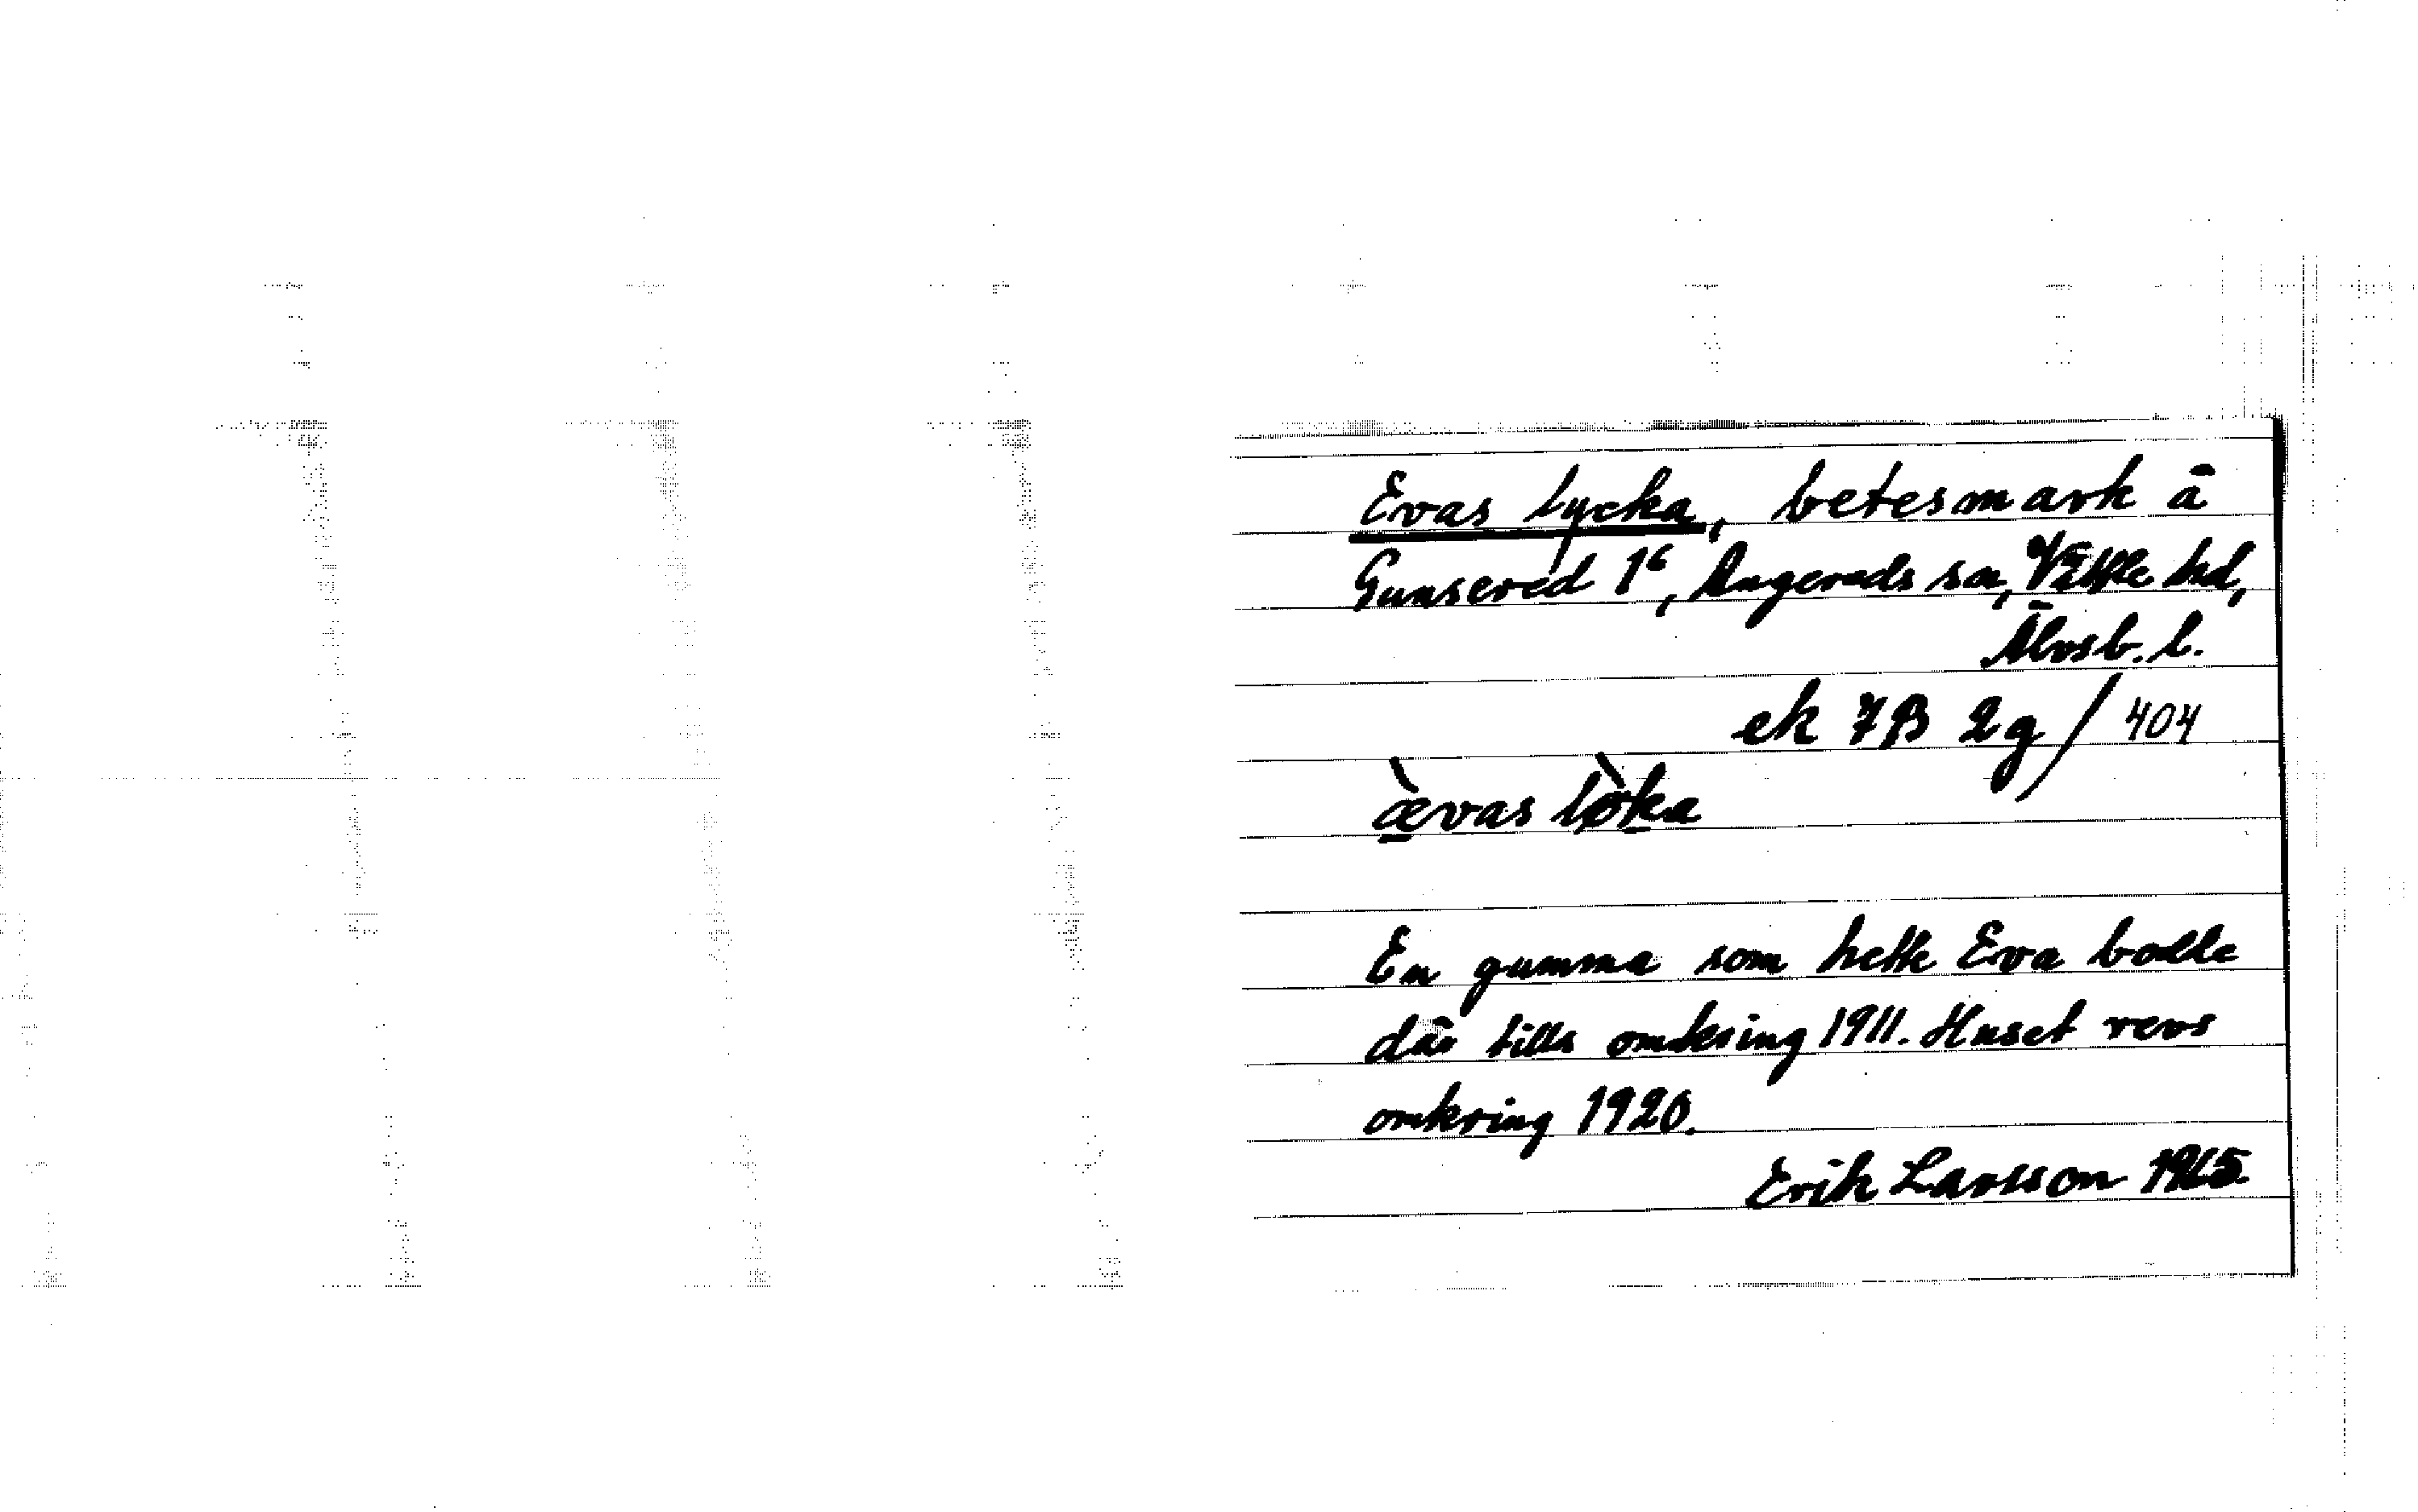 Evas lycka, betesmark å
Gunsered 1⁶, Angereds sn, Vättle hd,
Älvsb. l.
ek 7B 2g / 404
æ̀vas lø̀ka
En gumma som hette Eva bodde
där tills omkring 1911. Huset revs
omkring 1920.
Erik Larsson 1965.